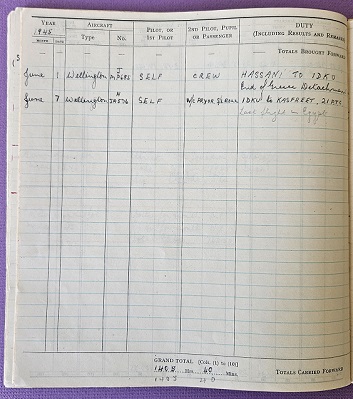 YEAR AIRCRAFT PILOT, OR 2ND PILOT, PUPIL DUTY
1945 1ST PILOT OR PASSENGER (INCLUDING RESULTS AND REMARKS
MONTH DATE Type No.
— — — — — — TOTALS BROUGHT FORWARD
June 1 Wellington J SELF CREW HASSANI TO IDKU
End of Greece Detachment
June 7 Wellington N SELF IDKU to KASFREET.
Last flight in Egypt
GRAND TOTAL [Cols. (1) to (10)]
1403 Hrs. 40 Mins. TOTALS CARRIED FORWARD
1403 40